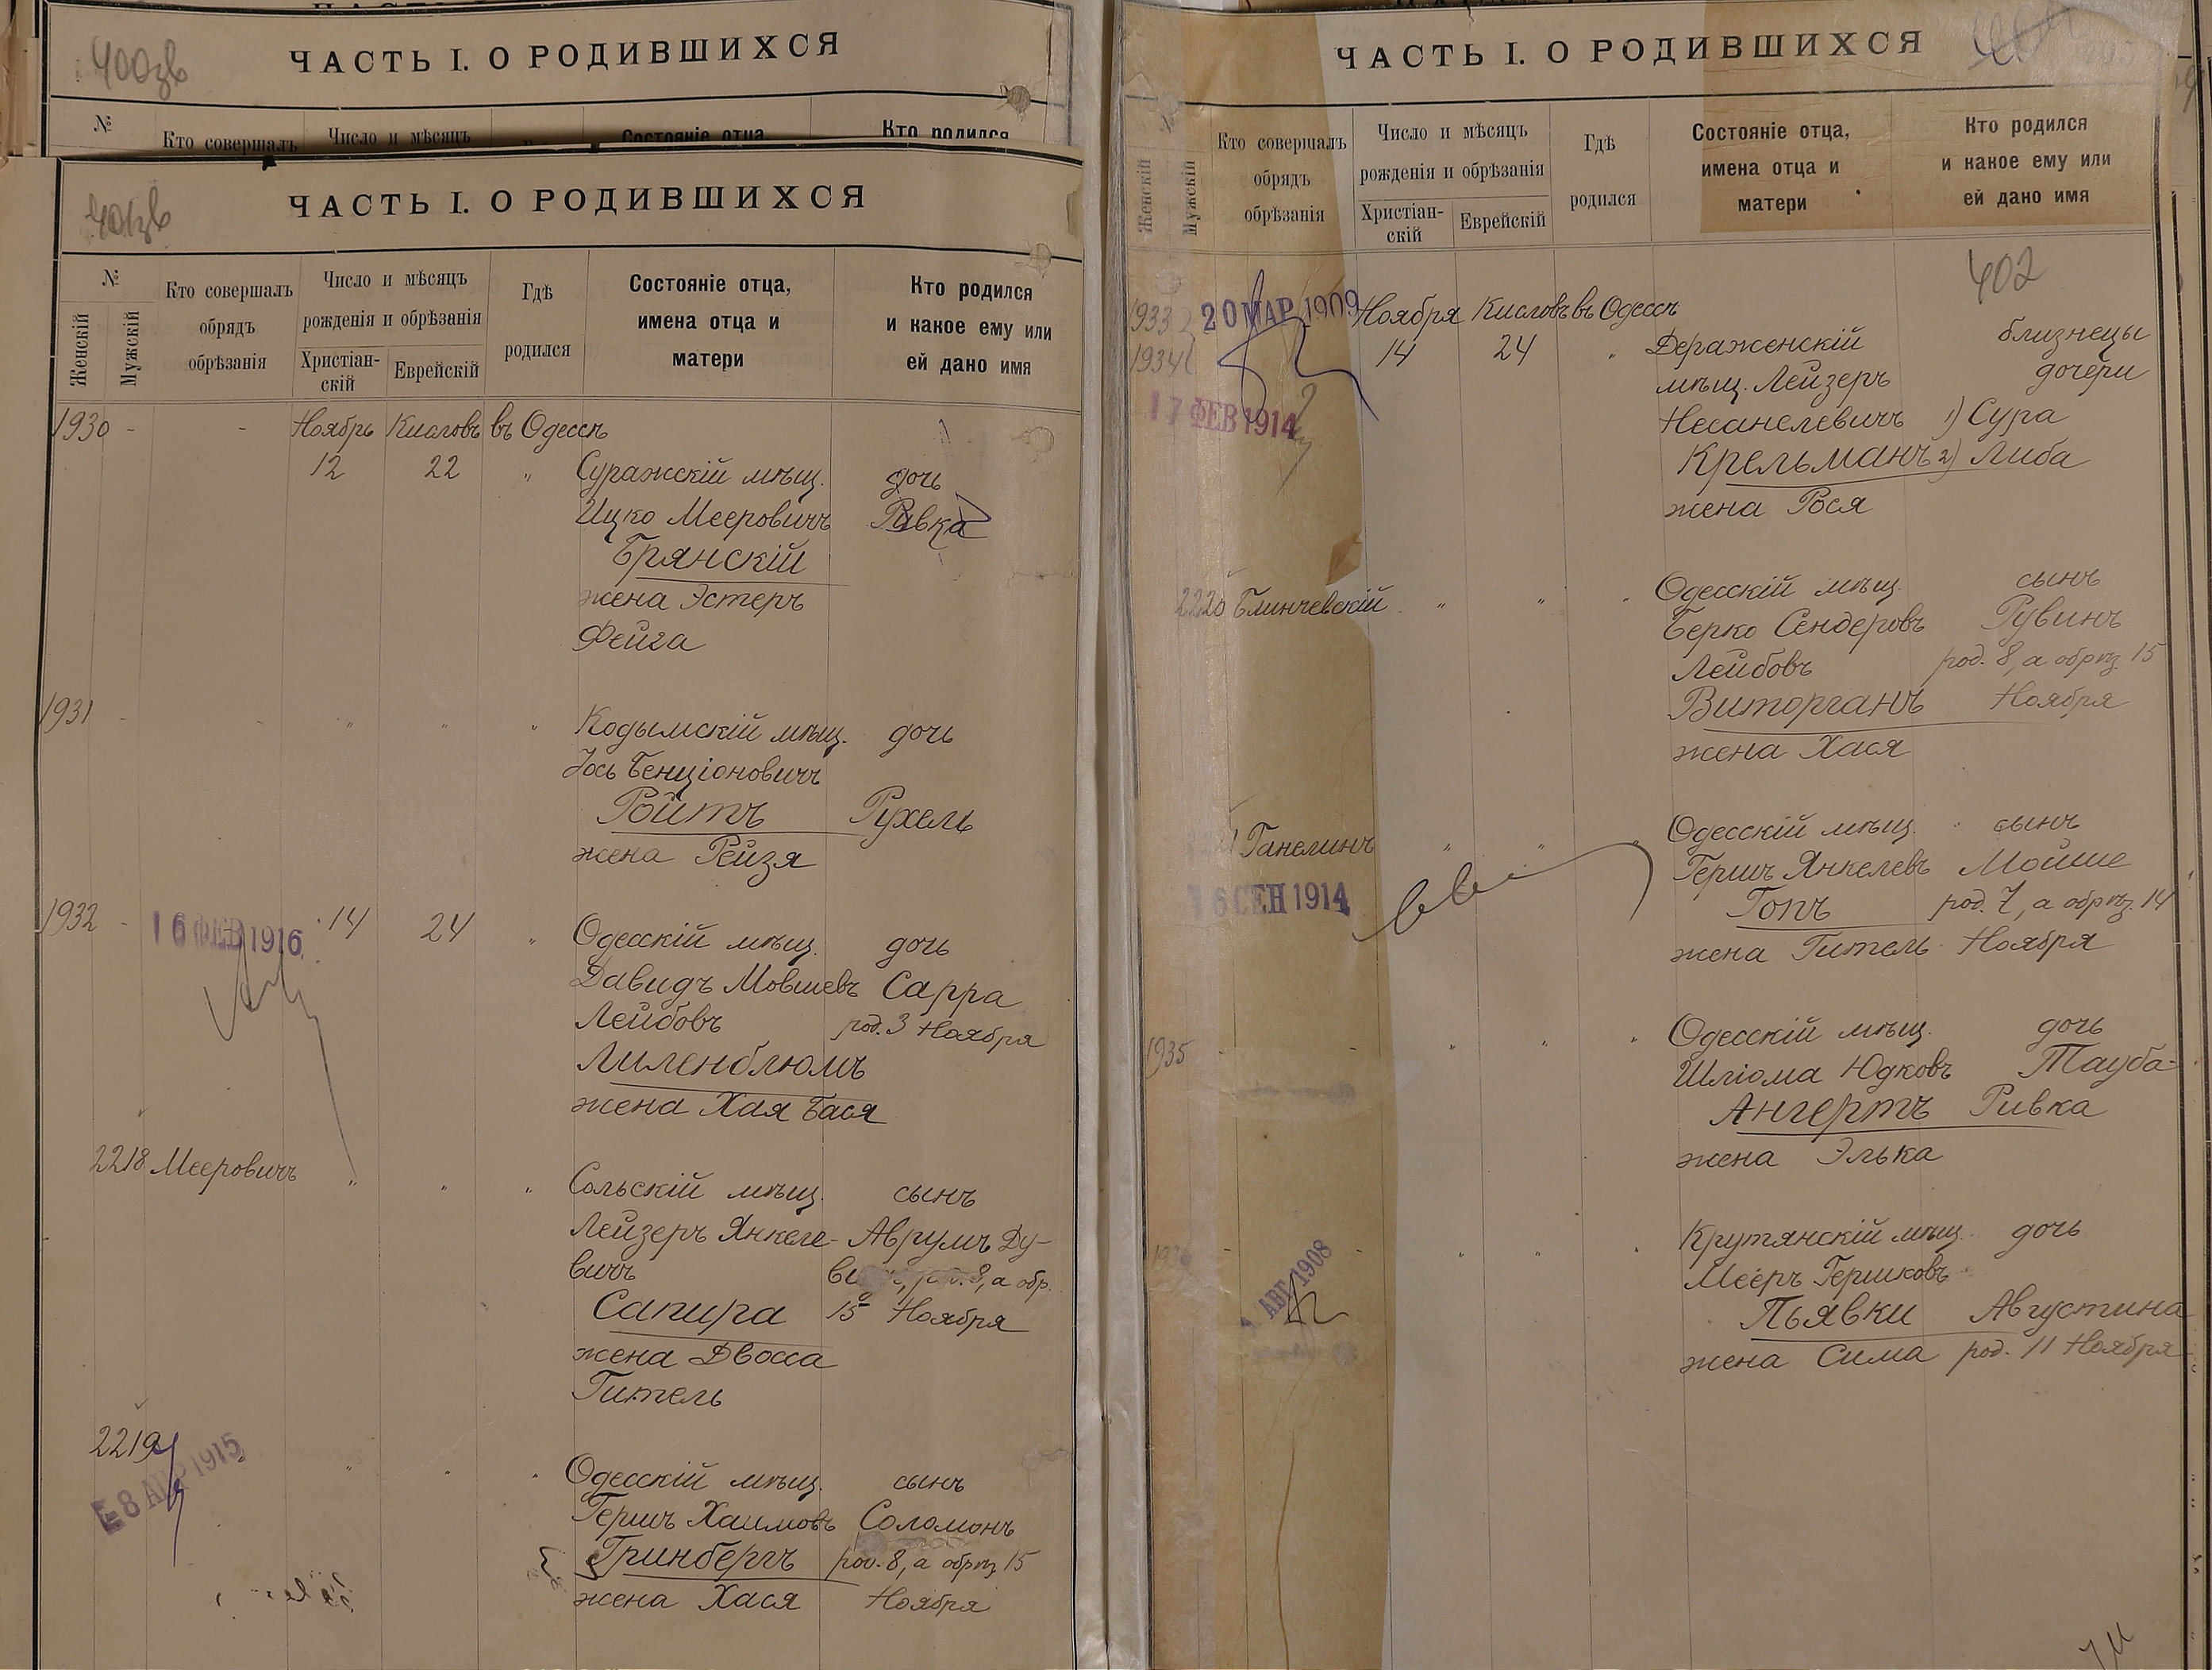 400зв
ЧАСТЬ I. О РОДИВШИХСЯ
№
Кто совершалъ
Число и мѣсяцъ
Состояніе отца
Кто родился
401зв
ЧАСТЬ I. О РОДИВШИХСЯ
№
Женскій
Мужскій
Кто совершалъ
обрядъ
обрѣзанія
Число и мѣсяцъ
рожденія и обрѣзанія
Христіан-
скій
Еврейскій
Гдѣ
родился
Состояніе отца,
имена отца и
матери
Кто родился
и какое ему или
ей дано имя
1930 - - Ноябрь Кислевъ въ Одессѣ
12 22 " Суражскій мѣщ. дочь
Ицко Мееровичъ Ривка
Брянскій
жена Эстеръ
Фейга
1931 - - " " " Кодымскій мѣщ. дочь
Іось Бенціоновичъ
Ройтъ Рухель
жена Рейзя
1932 - 16 ФЕВ 1916 14 24 " Одесскій мѣщ. дочь
Давидъ Мовшевъ Сарра
Лейбовъ род. 3 Ноября
Лиленблюмъ
жена Хая Бася
2218 Мееровичъ " " " Сольскій мѣщ. сынъ
Лейзеръ Янкеле- Аврумъ Ду-
вичъ 8, а обр.
Сапира 15 Ноября
жена Двосса
Гитель
2219 " " " Одесскій мѣщ. сынъ
8 1915
Гершъ Хаимовъ Соломонъ
Гринбергъ род. 8, а обрѣз. 15
жена Хася Ноября
ЧАСТЬ I. О РОДИВШИХСЯ
Женскій
Мужскій
Кто совершалъ
обрядъ
обрѣзанія
Число и мѣсяцъ
рожденія и обрѣзанія
Христіан-
скій
Еврейскій
Гдѣ
родился
Состояніе отца,
имена отца и
матери
Кто родился
и какое ему или
ей дано имя
402
1933 20 МАР 1909 Ноября Кислевъ въ Одессѣ
1934 14 24 " Дераженскій близнецы
мѣщ. Лейзеръ дочери
17 ФЕВ 1914
Несанелевичъ 1) Сура
Крельманъ 2) Либа
жена Рося
2220 Блинчевскій " " " Одесскій мѣщ. сынъ
Берко Сендеровъ Рувинъ
Лейбовъ род. 8, а обрѣз. 15
Виторганъ Ноября
жена Хася
Ганелинъ " " " Одесскій мѣщ. сынъ
Гершъ Янкелевъ Мойше
16 СЕН 1914
Гопъ род. 7, а обрѣз. 14
жена Гитель Ноября
1935 - - " " " Одесскій мѣщ. дочь
Шліома Юдковъ Тауба-
Ангертъ Ривка
жена Элька
- - " " " Крутянскій мѣщ. дочь
АВГ 1908
Мееръ Гершковъ
Пьявки Августина
жена Сима род. 11 Ноября